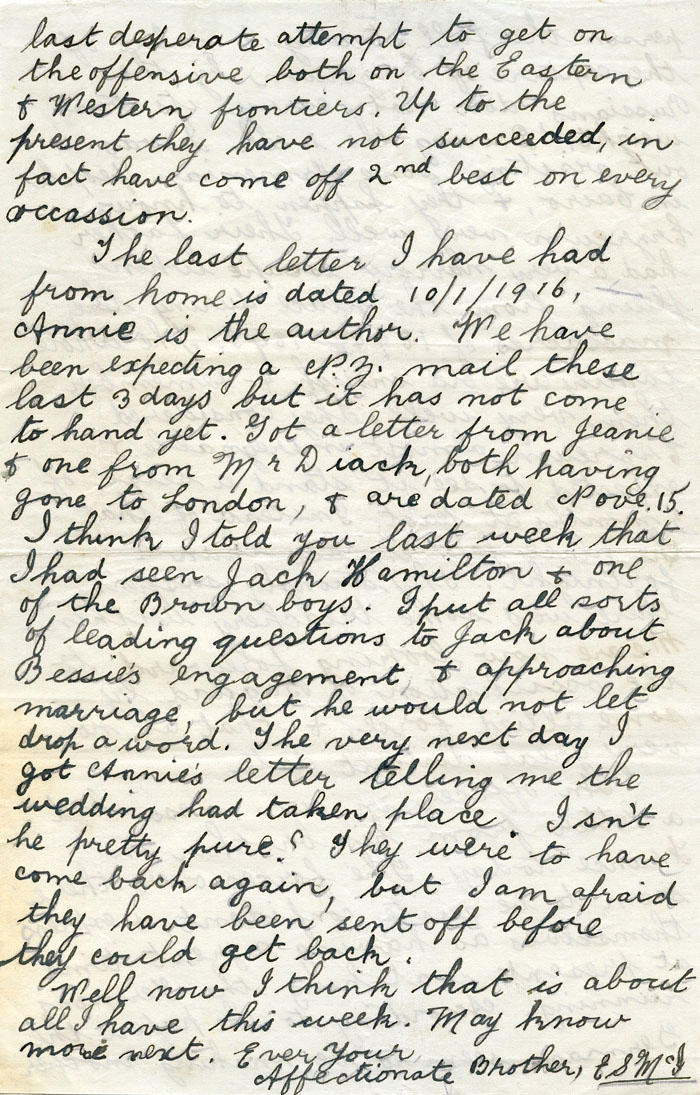 last desperate attempt to get on
the offensive both on the Eastern
& Western frontiers. Up to the
present they have not succeeded, in
fact have come off 2nd best on every
occassion.
The last letter I have had
from home is dated 10/1/1916,
Annie is the author. We have
been expecting a N.Z. mail these
last 3 days but it has not come
to hand yet. Got a letter from Jeanie
& one from Mr Diack, both having
gone to London, & are dated Nove. 15.
I think I told you last week that
I had seen Jack Hamilton & one
of the Brown boys. I put all sorts
of leading questions to Jack about
Bessie's engagement, & approaching
marriage, but he would not let
drop a word. The very next day I
got Annie's letter telling me the
wedding had taken place. Isn't
he pretty pure? They were to have
come back again, but I am afraid
they have been sent off before
they could get back.
Well now I think that is about
all I have this week. May know
more next. Ever Your
Affectionate Brother,